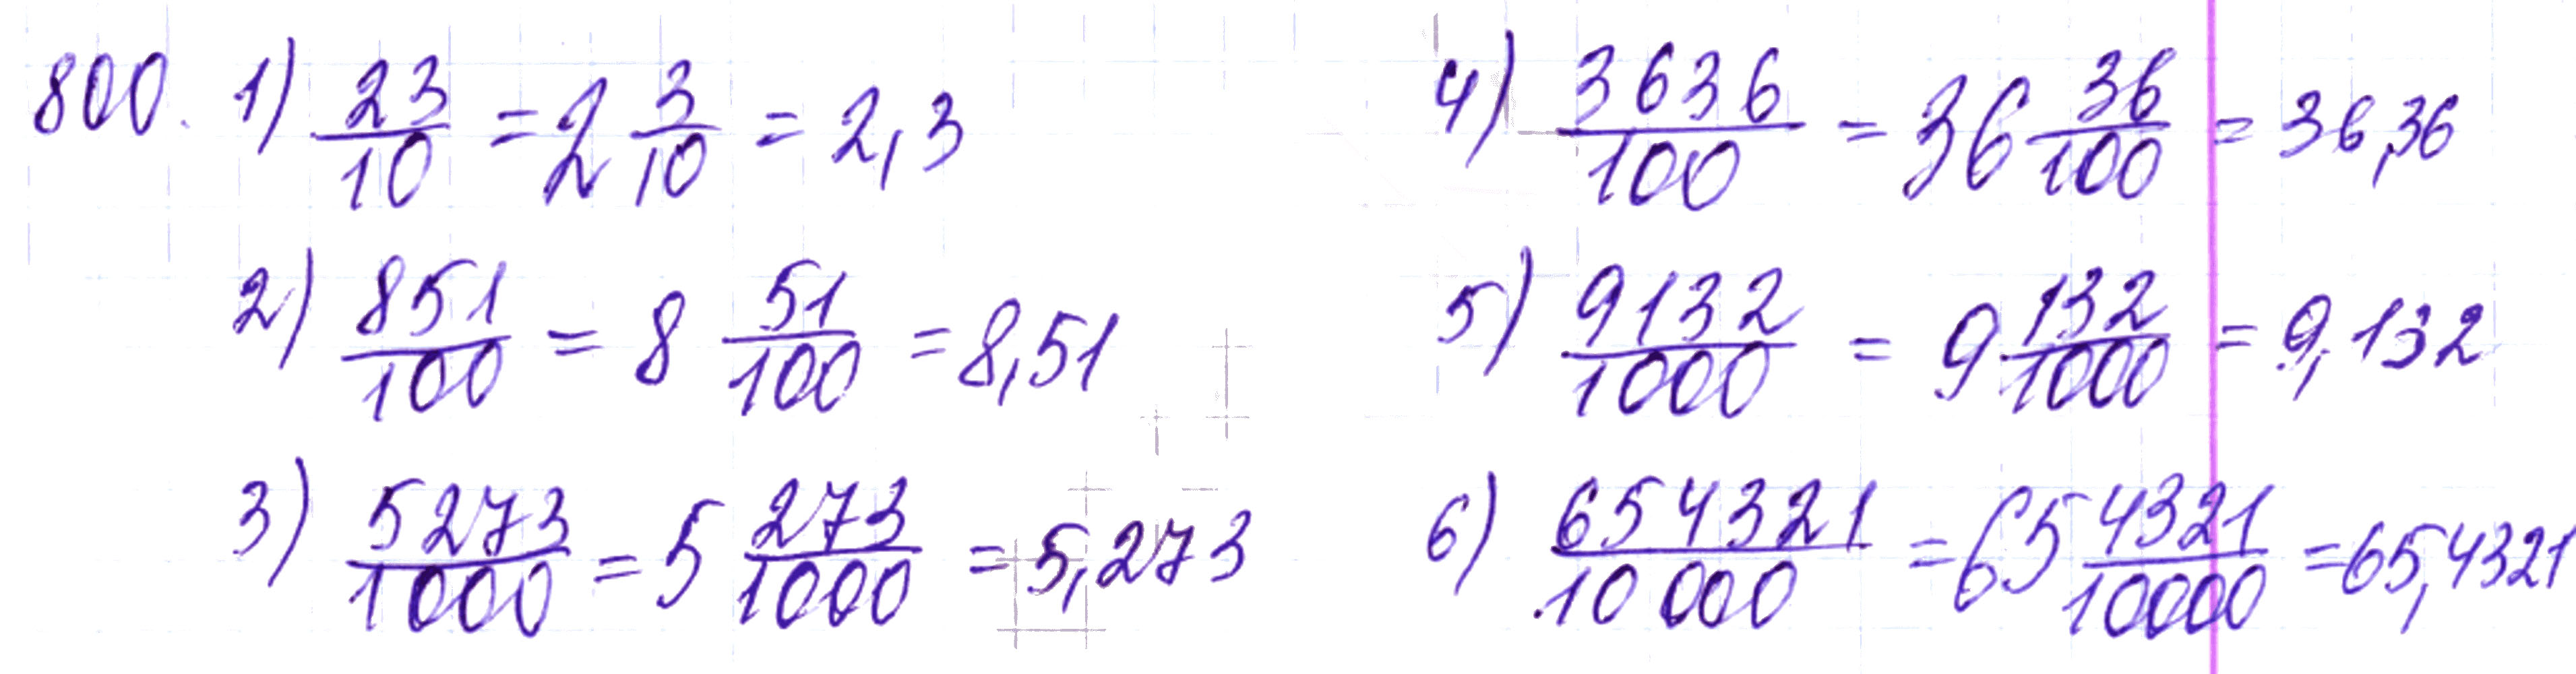 800. 1) 23/10 = 2 3/10 = 2,3
2) 851/100 = 8 51/100 = 8,51
3) 5273/1000 = 5 273/1000 = 5,273
4) 3636/100 = 36 36/100 = 36,36
5) 9132/1000 = 9 132/1000 = 9,132
6) 654321/10 000 = 65 4321/10000 = 65,4321